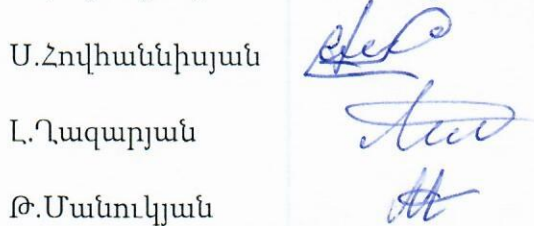 Ս.Հովհաննիսյան
Լ.Ղազարյան
Թ.Մանուկյան